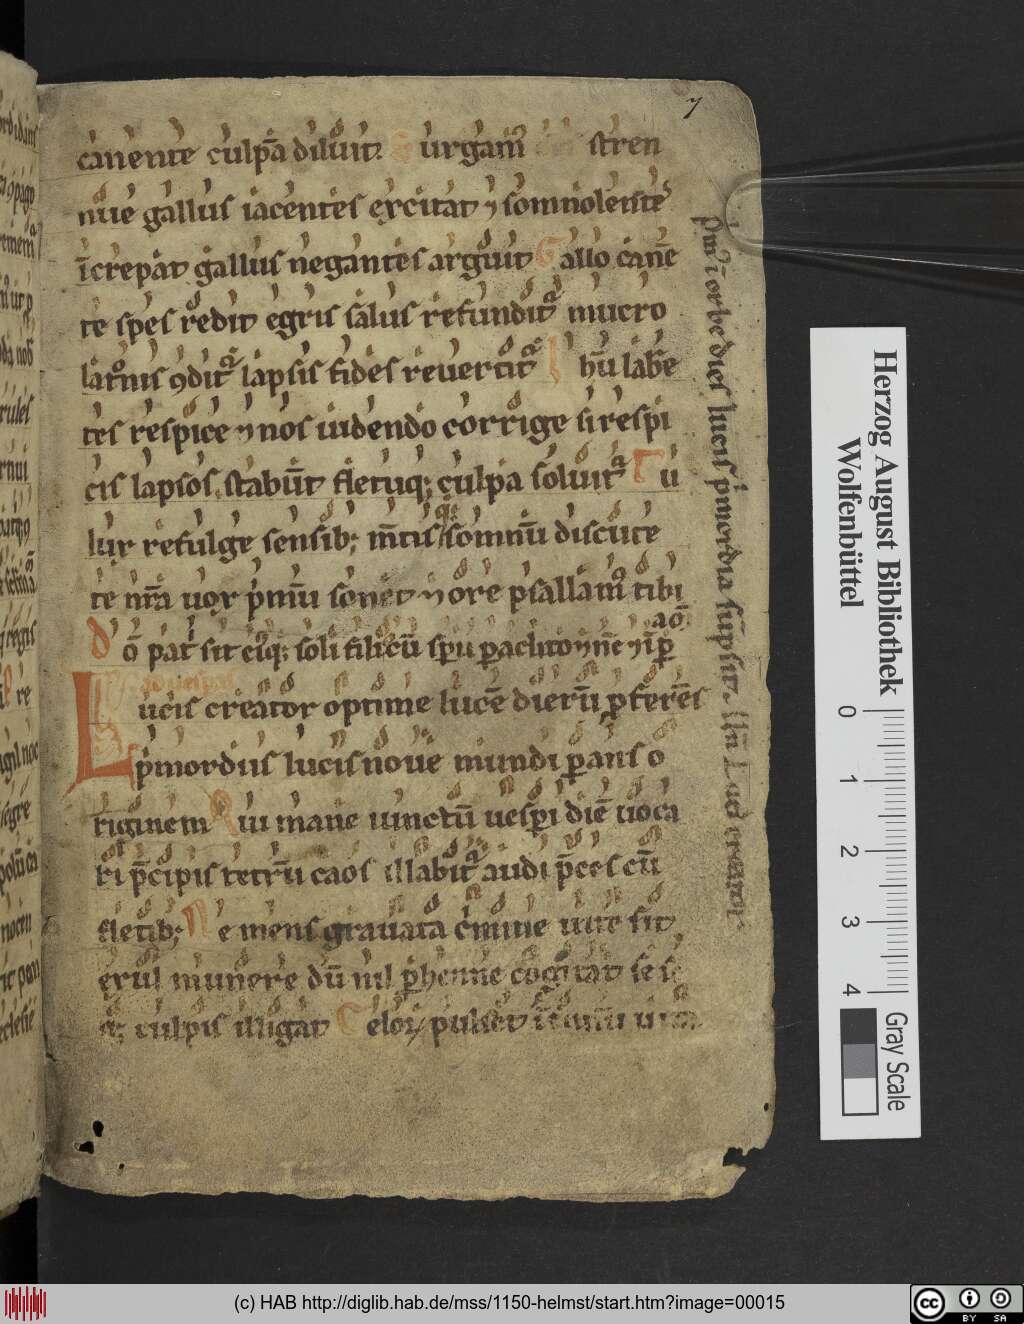 7
canente culpā diluit. Surgam⁹ stren
nue gallus iacentes excitat ⁊ somnolentes
īcrepat gallus negantes arguit Gallo canē
te spes redit egris salus refundit᷑ mucro
latronis ꝯdit᷑ lapsis fides reuertit᷑ Ihū labē
tes respice ⁊ nos uidendo corrige si respi
cis lapsos stabūt fletuq; culpa soluit᷑ Tu
lux refulge sensib; m̄tisq; somnū discute
te nr̄a uox p̍mū sonet ⁊ ore psallam⁹ tibi
dō patͥ sit eiq; soli filio cū spū paclito ⁊ nē ⁊ ī ꝑ
aō
ad uespas
Lucis creator optime lucē dierū ꝓferēs
p̍mordiis lucis noue mundi ꝑans o
riginem Qui mane iunctū uesꝑi diē uoca
ri p̄cipis tetrū caos illabit᷑ audi p̄ces cū
fletib; Ne mens grauata c̍mine uite sit
exul munere dū nil ꝑhenne cogitat se se
q; culpis illigat Celoꝝ pulset ītimū uita
Pm⁹ ī orbe dies lucis p̍mordia sūpsit. Hȳ Luci creator
Herzog August Bibliothek
Wolfenbüttel
0 1 2 3 4
Gray Scale
(c) HAB http://diglib.hab.de/mss/1150-helmst/start.htm?image=00015
cc BY SA